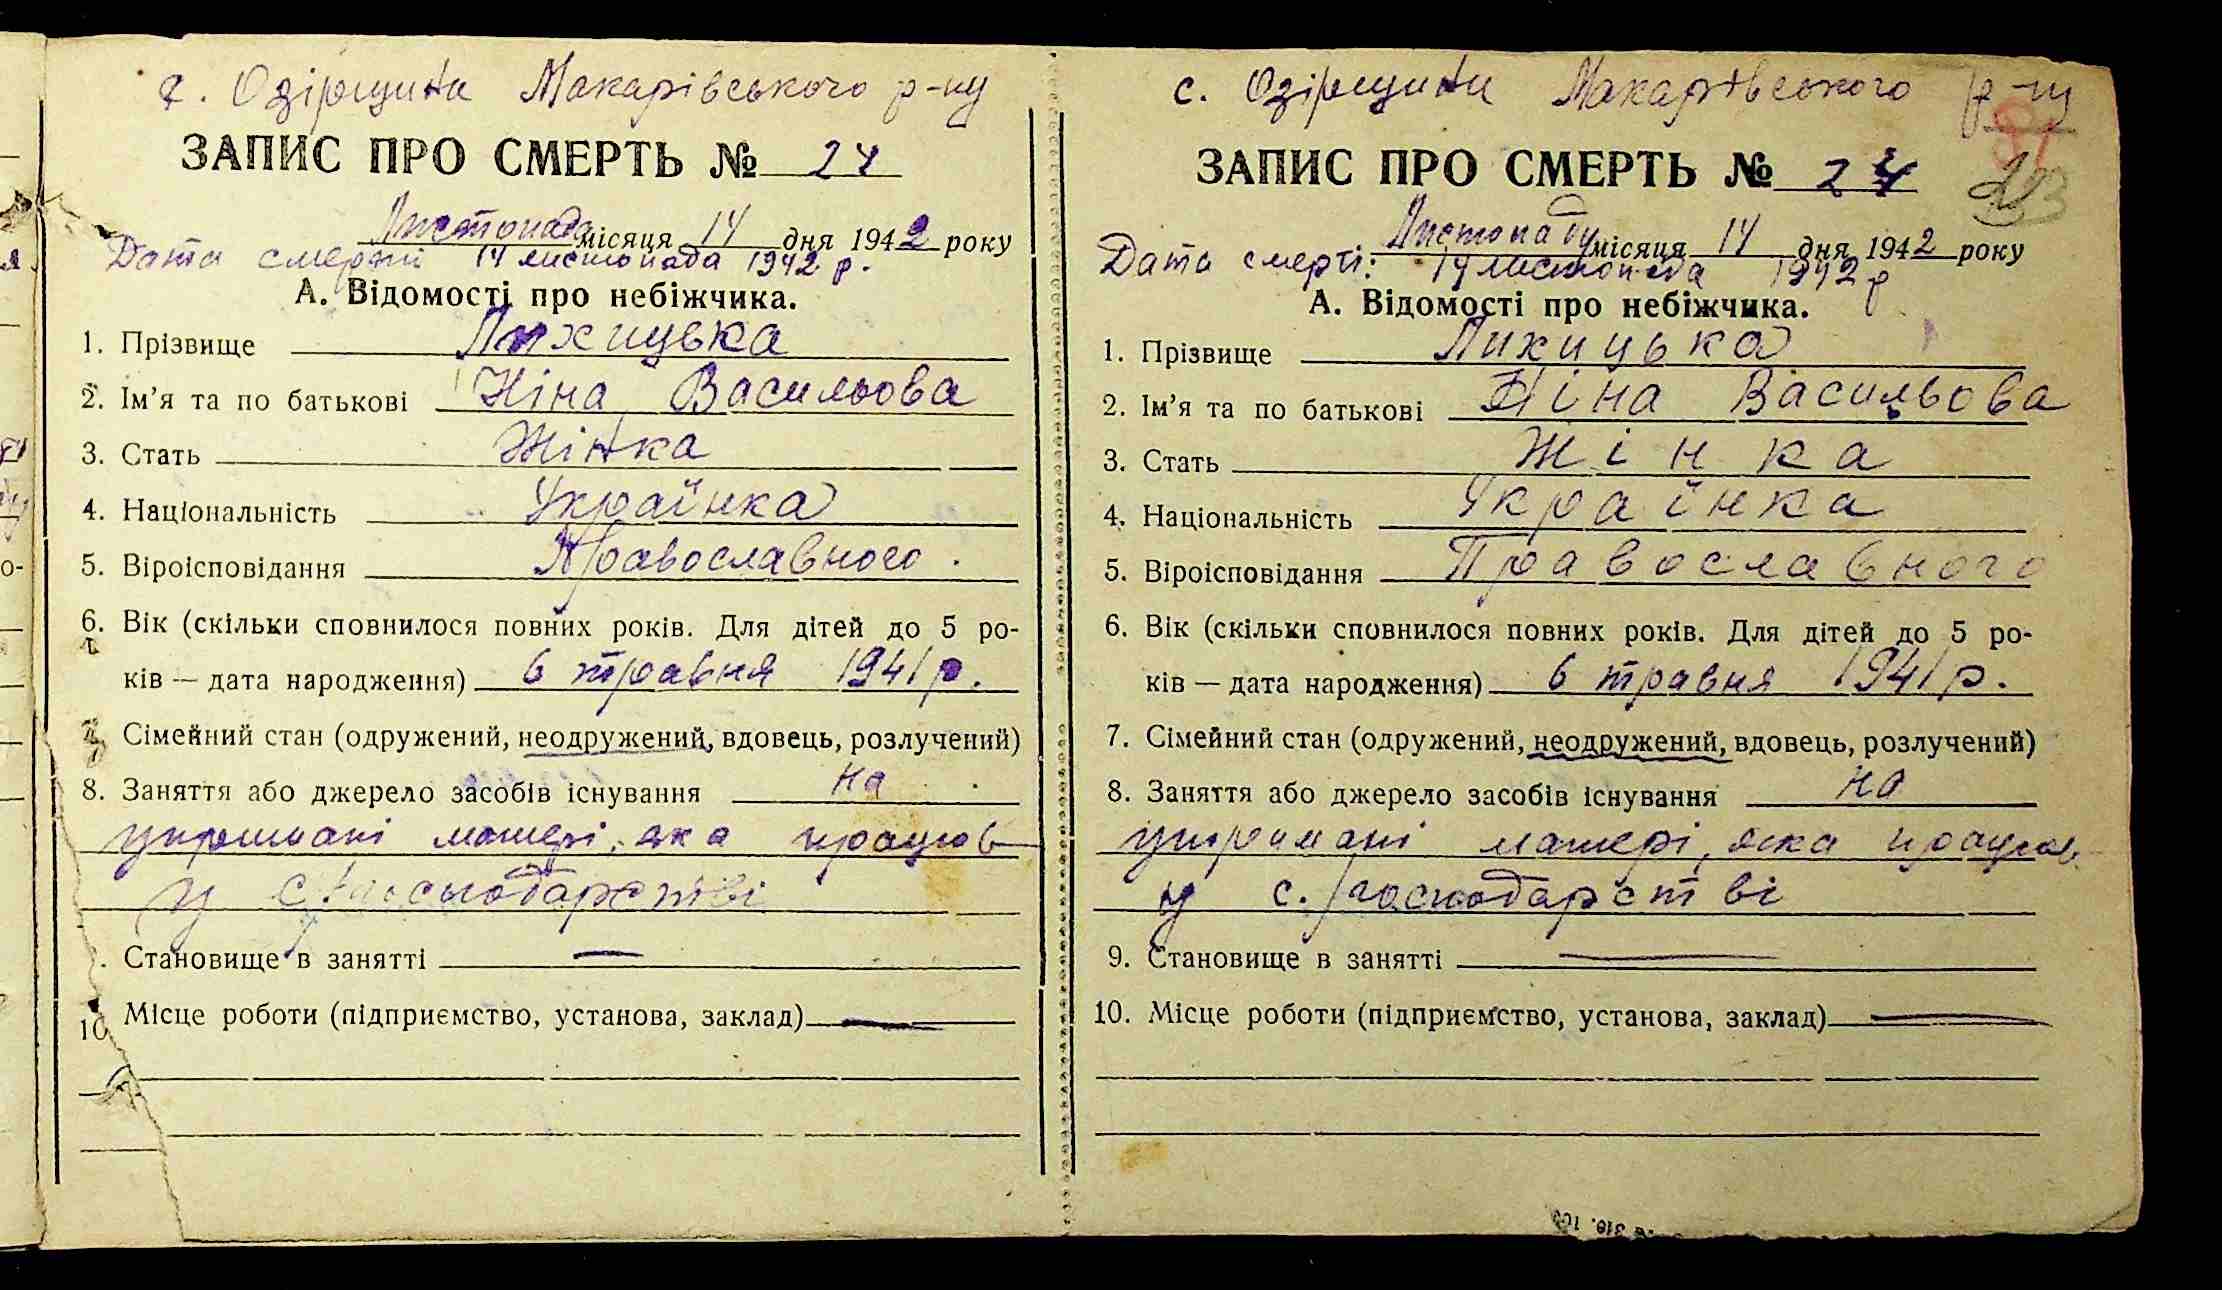 с. Озірщина Макарівського р-ну
ЗАПИС ПРО СМЕРТЬ № 24
Листопада місяця 14 дня 1942 року
Дата смерти 14 листопада 1942 р.
А. Відомості про небіжчика.
1. Прізвище Лихицька
2. Ім'я та по батькові Ніна Васильова
3. Стать Жінка
4. Національність Українка
5. Віроісповідання Православного
6. Вік (скільки сповнилося повних років. Для дітей до 5 ро-
ків — дата народження) 6 травня 1941 р.
Сімейний стан (одружений, неодружений, вдовець, розлучений)
8. Заняття або джерело засобів існування на
утримані матері, яка працює
у с. господарстві
. Становище в занятті —
10 Місце роботи (підприємство, установа, заклад) —
с. Озірщина Макарівського р-ну
ЗАПИС ПРО СМЕРТЬ № 24
Листопаду місяця 14 дня 1942 року
Дата смерті: 14 листопада 1942 р
А. Відомості про небіжчика.
1. Прізвище Лихицька
2. Ім'я та по батькові Ніна Васильова
3. Стать Жінка
4. Національність Українка
5. Віроісповідання Православного
6. Вік (скільки сповнилося повних років. Для дітей до 5 ро-
ків — дата народження) 6 травня 1941 р.
7. Сімейний стан (одружений, неодружений, вдовець, розлучений)
8. Заняття або джерело засобів існування на
утримані матері, яка працює
у с. господарстві
9. Становище в занятті —
10. Місце роботи (підприємство, установа, заклад) —